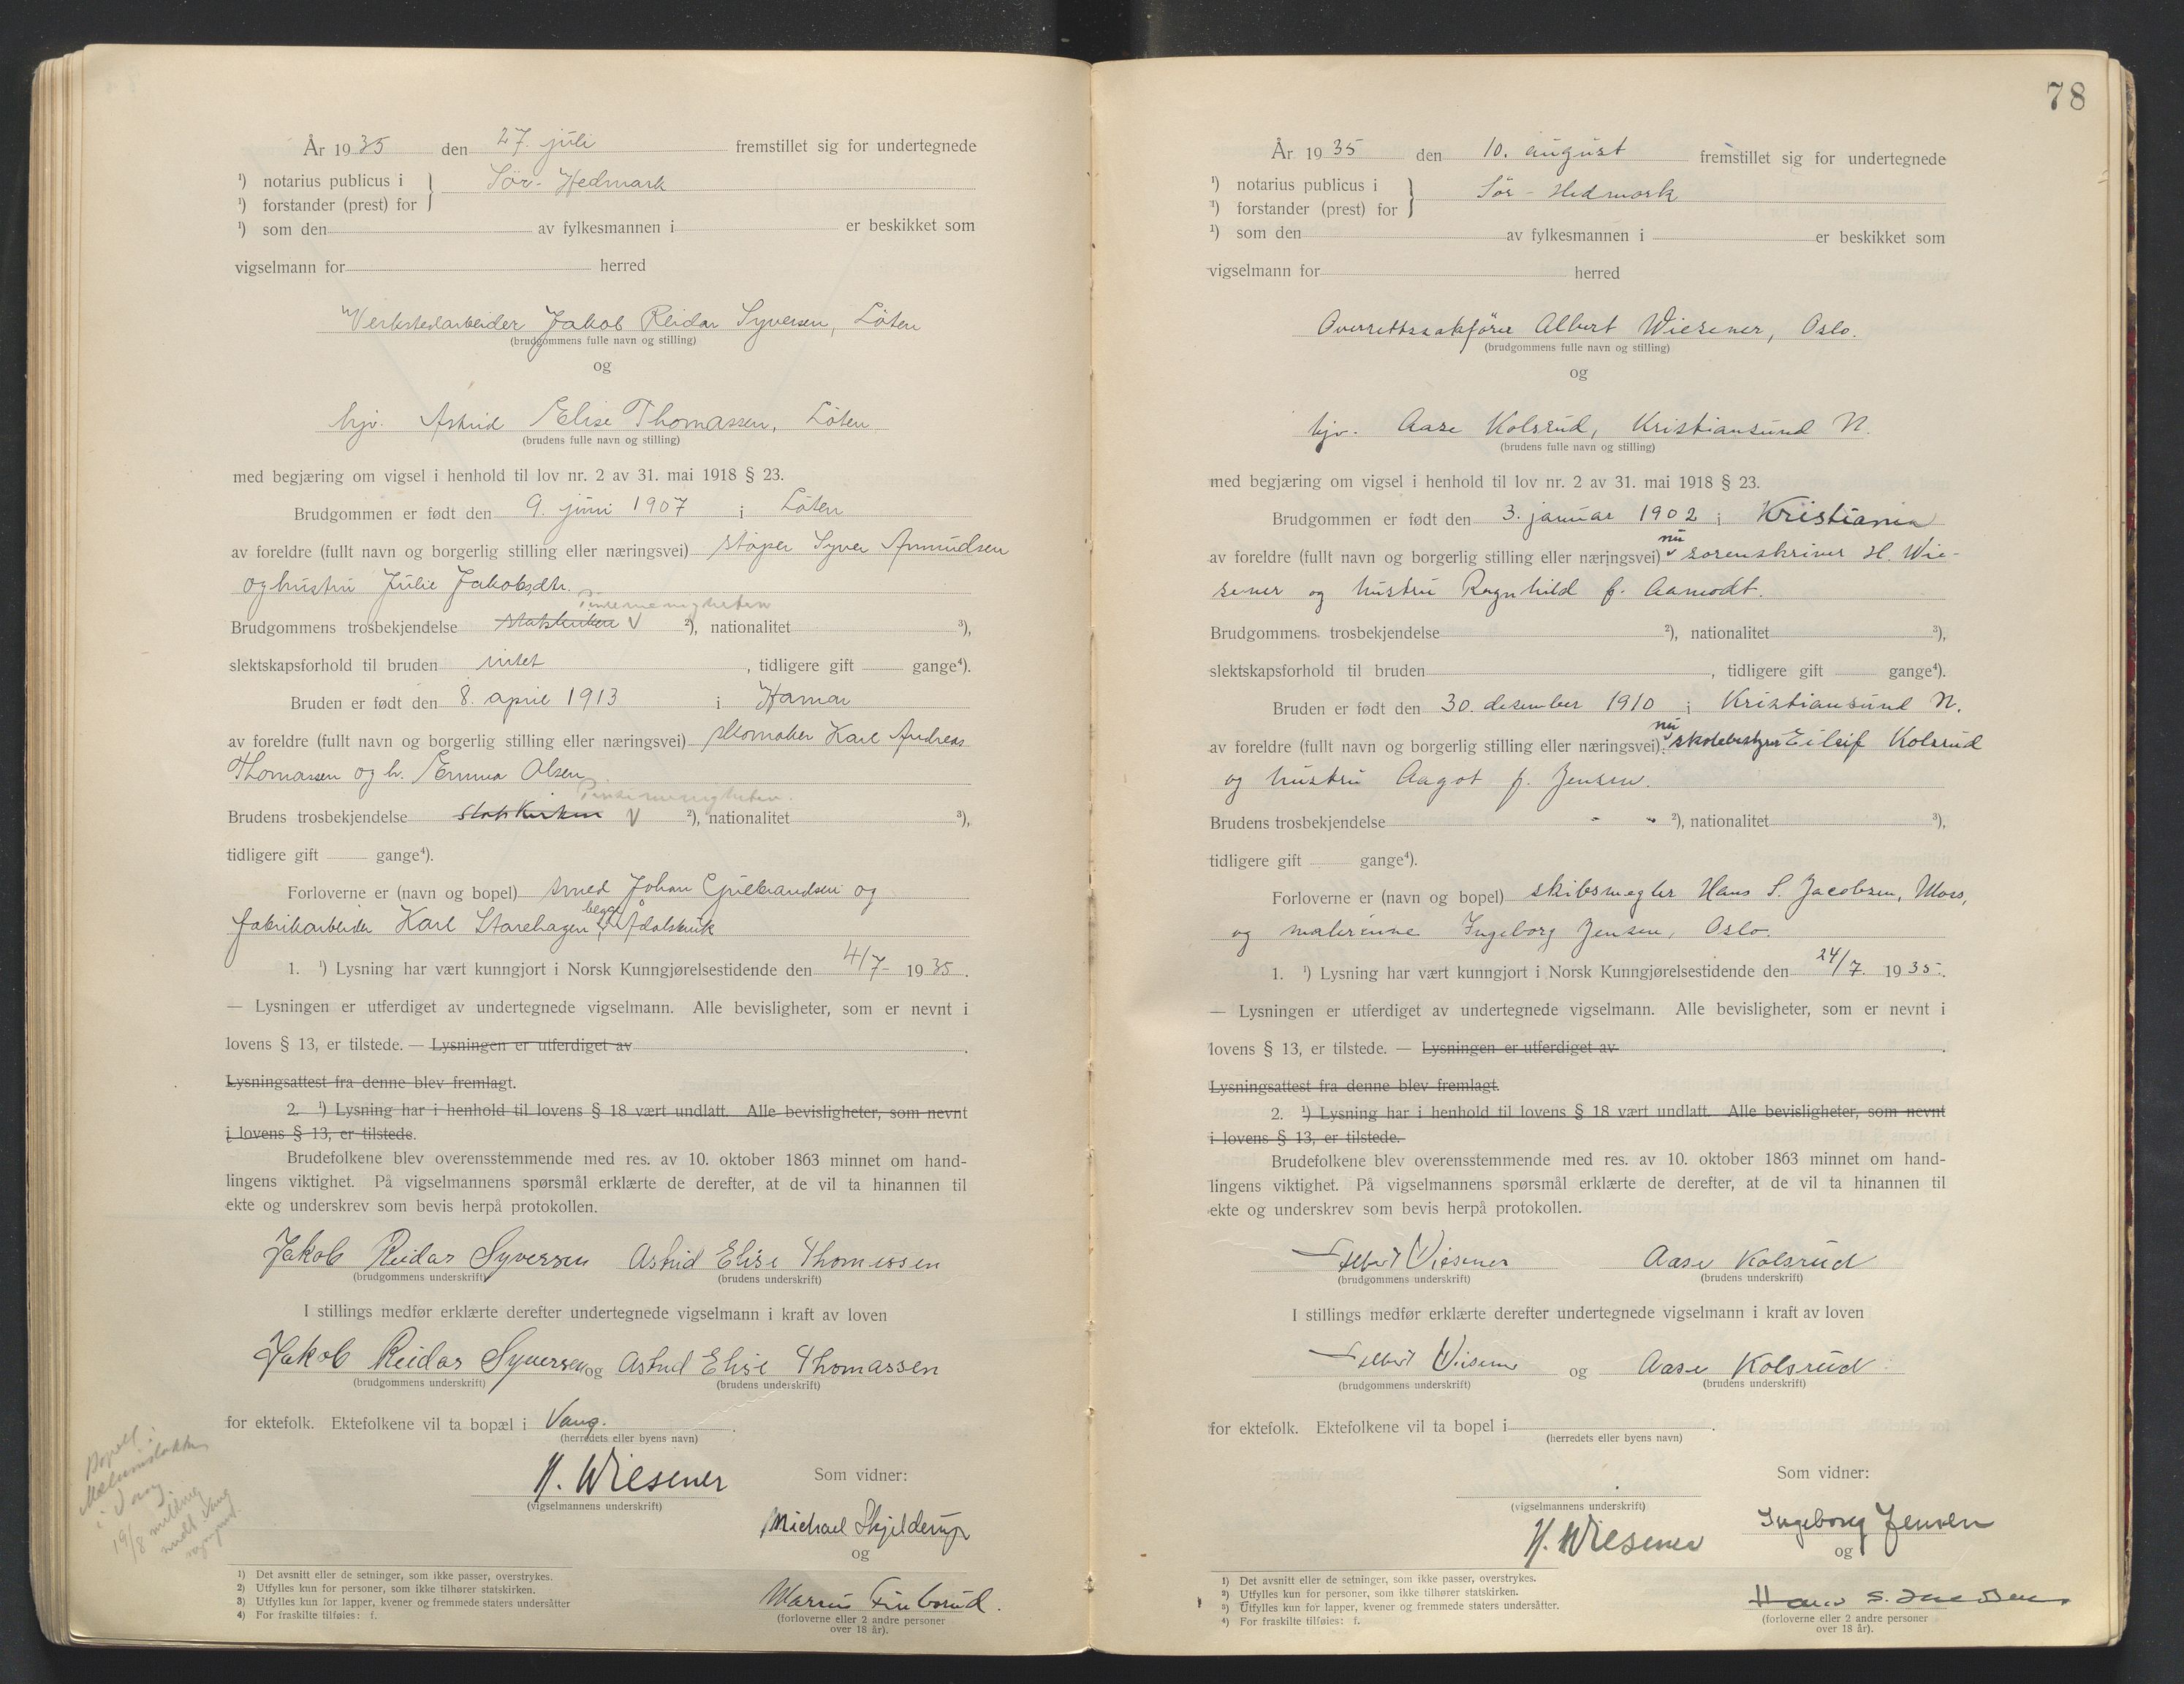 År 1935 den 27. juli fremstillet sig for undertegnede
¹) notarius publicus i } Sör-Hedmark
¹) forstander (prest) for
¹) som den av fylkesmannen i er beskikket som
vigselmann for herred
Verkstedarbeider Jakob Reidar Syversen, Löten
(brudgommens fulle navn og stilling)
og
hjv. Astrid Elise Thomassen, Löten
(brudens fulle navn og stilling)
med begjæring om vigsel i henhold til lov nr. 2 av 31. mai 1918 § 23.
Brudgommen er født den 9. juni 1907 i Löten
av foreldre (fullt navn og borgerlig stilling eller næringsvei) støper Syver Asmundsen
og hustru Julie Jakobsdtr.
Pinsemenigheten
Brudgommens trosbekjendelse statskirken V ²), nationalitet ³),
slektskapsforhold til bruden intet, tidligere gift gange⁴).
Bruden er født den 8. april 1913 i Hamar
av foreldre (fullt navn og borgerlig stilling eller næringsvei) skomaker Karl Andreas
Thomassen og h. Emma Olsen
Pinsemenigheten.
Brudens trosbekjendelse statskirken V ²), nationalitet ³),
tidligere gift gange⁴).
Forloverne er (navn og bopel) smed Johan Gulbrandsen og
fabrikarbeider Karl Starehagen, begge Ådalsbruk
1. ¹) Lysning har vært kunngjort i Norsk Kunngjørelsestidende den 4/7- 1935.
— Lysningen er utferdiget av undertegnede vigselmann. Alle bevisligheter, som er nevnt i
lovens § 13, er tilstede. — Lysningen er utferdiget av .
Lysningsattest fra denne blev fremlagt.
2. ¹) Lysning har i henhold til lovens § 18 vært undlatt. Alle bevisligheter, som nevnt
i lovens § 13, er tilstede.
Brudefolkene blev overensstemmende med res. av 10. oktober 1863 minnet om hand-
lingens viktighet. På vigselmannens spørsmål erklærte de derefter, at de vil ta hinannen til
ekte og underskrev som bevis herpå protokollen.
Jakob Reidar Syversen Astrid Elise Thomassen
(brudgommens underskrift) (brudens underskrift)
I stillings medfør erklærte derefter undertegnede vigselmann i kraft av loven
Jakob Reidar Syversen og Astrid Elise Thomassen
(brudgommens underskrift) (brudens underskrift)
for ektefolk. Ektefolkene vil ta bopæl i Vang.
(herredets eller byens navn)
H. Wiesener
(vigselmannens underskrift)
Som vidner:
Michael Skjelderup
og
Marius Finborud.
(forloverne eller 2 andre personer
over 18 år).
Bopæl:
i Vang.
19/8
¹) Det avsnitt eller de setninger, som ikke passer, overstrykes.
²) Utfylles kun for personer, som ikke tilhører statskirken.
³) Utfylles kun for lapper, kvener og fremmede staters undersåtter
⁴) For fraskilte tilføies: f.
78
År 1935 den 10. august fremstillet sig for undertegnede
¹) notarius publicus i } Sör-Hedmark
¹) forstander (prest) for
¹) som den av fylkesmannen i er beskikket som
vigselmann for herred
Overrettssakfører Albert Wiesener, Oslo.
(brudgommens fulle navn og stilling)
og
hjv. Aase Kolsrud, Kristiansund N.
(brudens fulle navn og stilling)
med begjæring om vigsel i henhold til lov nr. 2 av 31. mai 1918 § 23.
Brudgommen er født den 3. januar 1902 i Kristiania
av foreldre (fullt navn og borgerlig stilling eller næringsvei) nu sorenskriver H. Wie-
sener og hustru Ragnhild f. Aamodt.
Brudgommens trosbekjendelse ²), nationalitet ³),
slektskapsforhold til bruden , tidligere gift gange⁴).
Bruden er født den 30. desember 1910 i Kristiansund N.
av foreldre (fullt navn og borgerlig stilling eller næringsvei) nu skolebestyrer Eileif Kolsrud
og hustru Aagot f. Jensen.
Brudens trosbekjendelse ²), nationalitet ³),
tidligere gift gange⁴).
Forloverne er (navn og bopel) skibsmegler Hans S. Jacobsen, Moss,
og malerinne Ingeborg Jensen, Oslo.
1. ¹) Lysning har vært kunngjort i Norsk Kunngjørelsestidende den 24/7. 1935.
— Lysningen er utferdiget av undertegnede vigselmann. Alle bevisligheter, som er nevnt i
lovens § 13, er tilstede. — Lysningen er utferdiget av .
Lysningsattest fra denne blev fremlagt.
2. ¹) Lysning har i henhold til lovens § 18 vært undlatt. Alle bevisligheter, som nevnt
i lovens § 13, er tilstede.
Brudefolkene blev overensstemmende med res. av 10. oktober 1863 minnet om hand-
lingens viktighet. På vigselmannens spørsmål erklærte de derefter, at de vil ta hinannen til
ekte og underskrev som bevis herpå protokollen.
Albert Wiesener Aase Kolsrud
(brudgommens underskrift) (brudens underskrift)
I stillings medfør erklærte derefter undertegnede vigselmann i kraft av loven
Albert Wiesener og Aase Kolsrud
(brudgommens underskrift) (brudens underskrift)
for ektefolk. Ektefolkene vil ta bopel i .
(herredets eller byens navn)
Som vidner:
(vigselmannens underskrift)
H. Wiesener
Ingeborg Jensen
og
Hans S. Jacobsen
(forloverne eller 2 andre personer
over 18 år).
¹) Det avsnitt eller de setninger, som ikke passer, overstrykes.
²) Utfylles kun for personer, som ikke tilhører statskirken.
³) Utfylles kun for lapper, kvener og fremmede staters undersåtter.
⁴) For fraskilte tilføies: f.